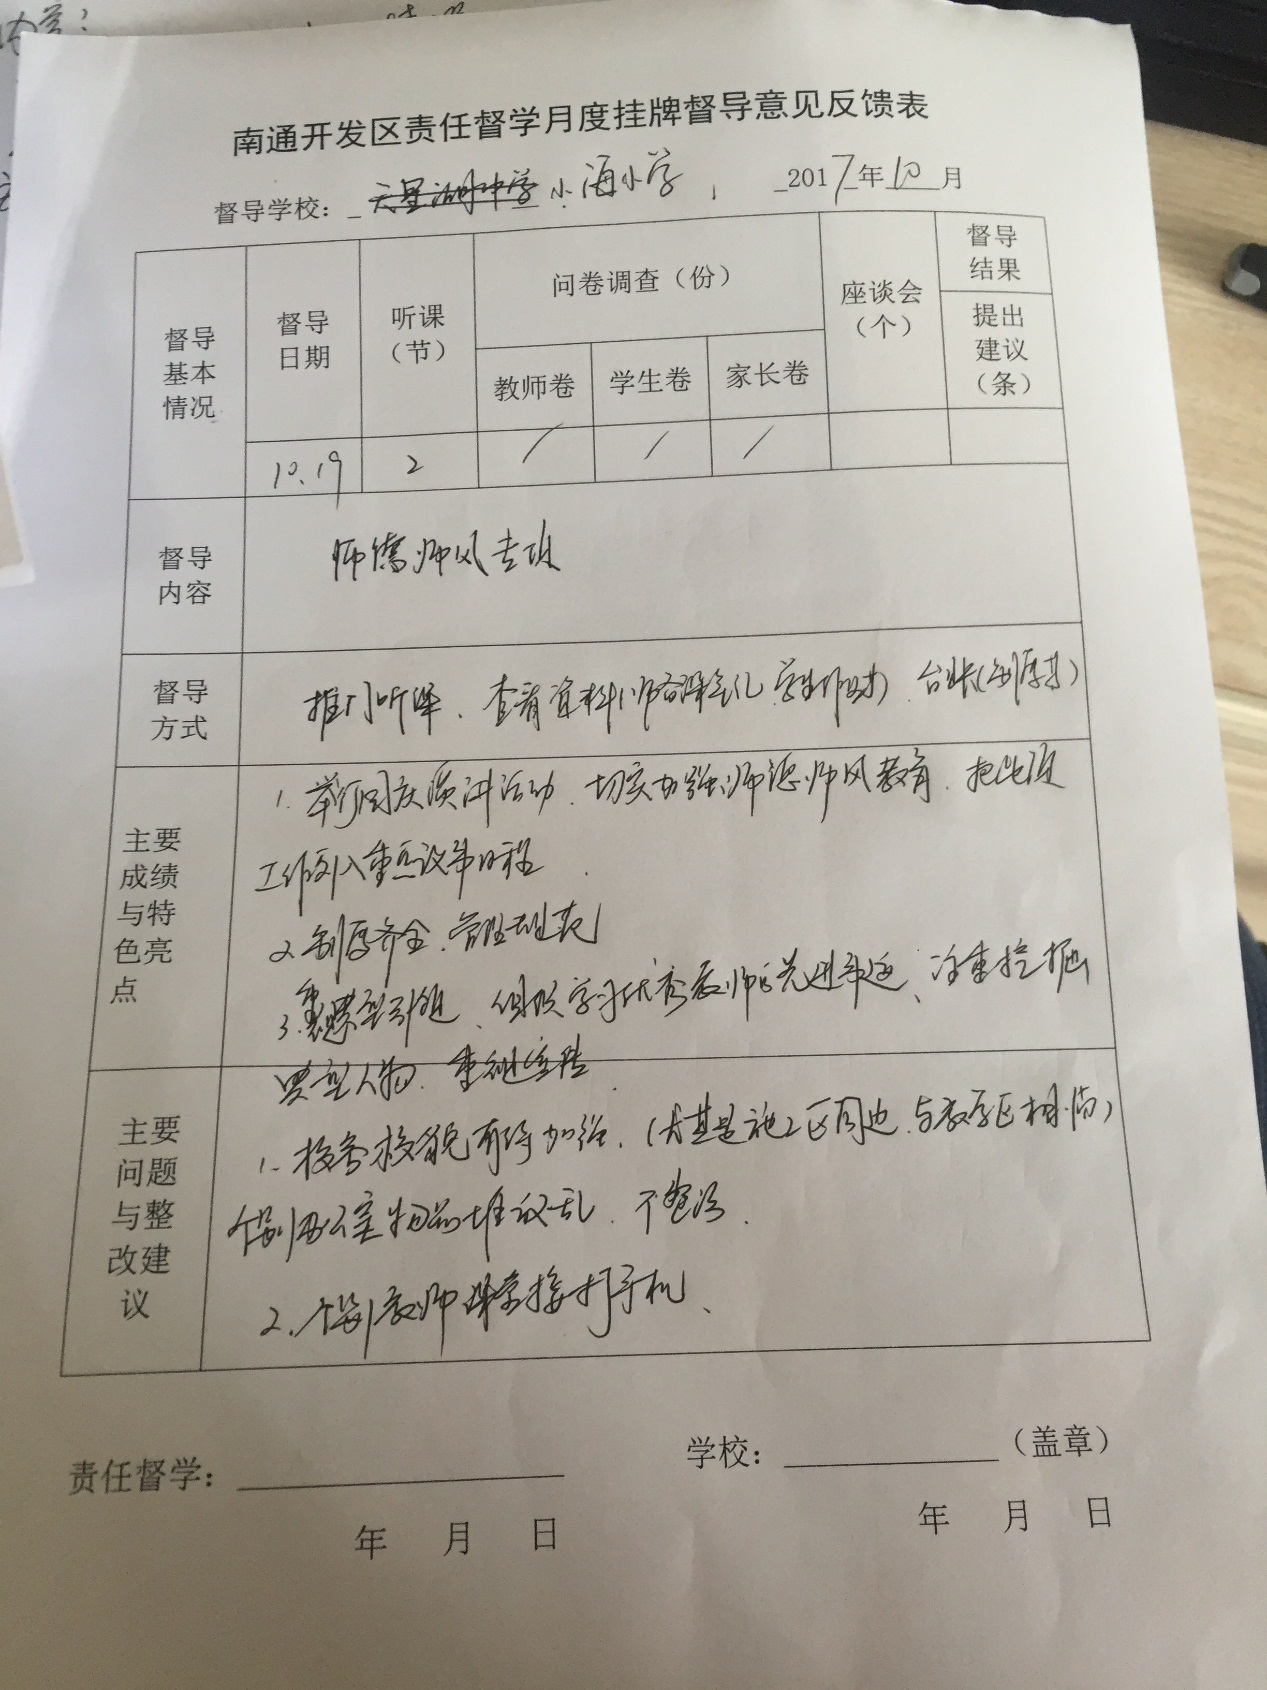 南通开发区责任督学月度挂牌督导意见反馈表
督导学校：天星湖中学 小海小学 2017年10月
督导
基本
情况
督导
日期
听课
（节）
问卷调查（份）
教师卷 学生卷 家长卷
座谈会
（个）
督导
结果
提出
建议
（条）
10.19 2 / / /
督导
内容
师德师风专项
督导
方式
推门听课、查看资料 台账(制度等)
主要
成绩
与特
色亮
点
1. 举行国庆演讲活动、切实加强师德师风教育、把此项
工作列入重点议事日程
2. 制度齐全、管理规范
3. 典型引领、组织学习优秀教师先进事迹、注重挖掘
典型人物、重视宣传
主要
问题
与整
改建
议
1. 校容校貌有待加强、(尤其是施工区周边、与教学区相临)
个别办公室物品堆放乱、不整洁、
2. 个别教师课堂接打手机、
责任督学：
学校： （盖章）
年 月 日
年 月 日